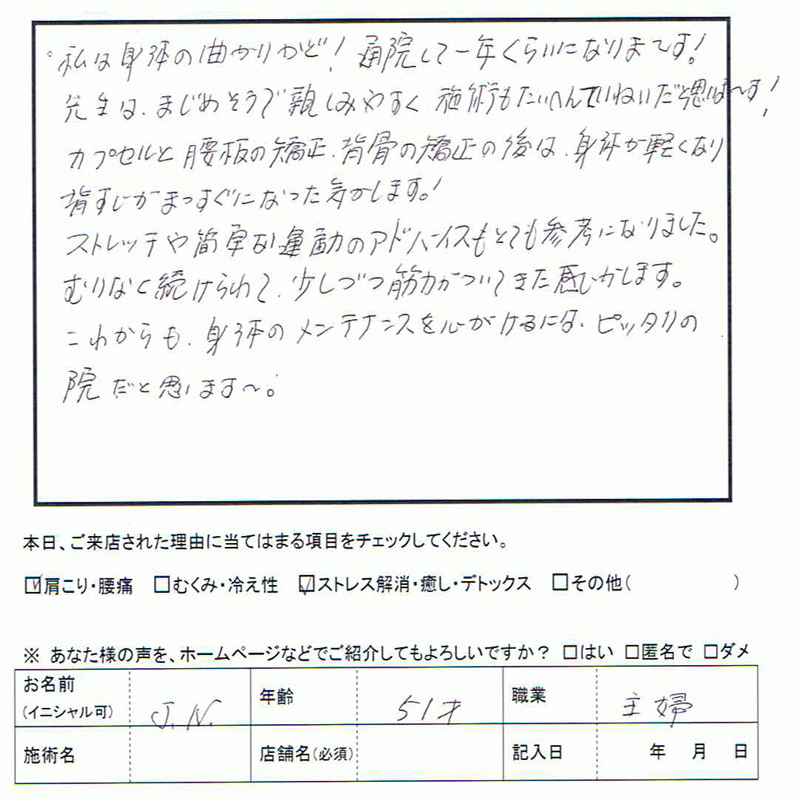 。私は身体の曲がりかど！通院して一年くらいになりま〜す！
先生は、まじめそうで親しみやすく、施術もたいへんていねいだと思いま〜す！
カプセルと腰板の矯正、背骨の矯正の後は、身体が軽くなり
背すじがまっすぐになった気がします。！
ストレッチや簡単な運動のアドバイスもとても参考になりました。
むりなく続けられて、少しづつ筋力がついてきた感じがします。
これからも、身体のメンテナンスを心がけるには、ピッタリの
院だと思います〜。
本日、ご来店された理由に当てはまる項目をチェックしてください。
☑肩こり・腰痛 □むくみ・冷え性 ☑ストレス解消・癒し・デトックス □その他( )
※ あなた様の声を、ホームページなどでご紹介してもよろしいですか？ □はい □匿名で □ダメ
お名前 (イニシャル可) J.N. 年齢 51才 職業 主婦
施術名 店舗名(必須) 記入日 年 月 日